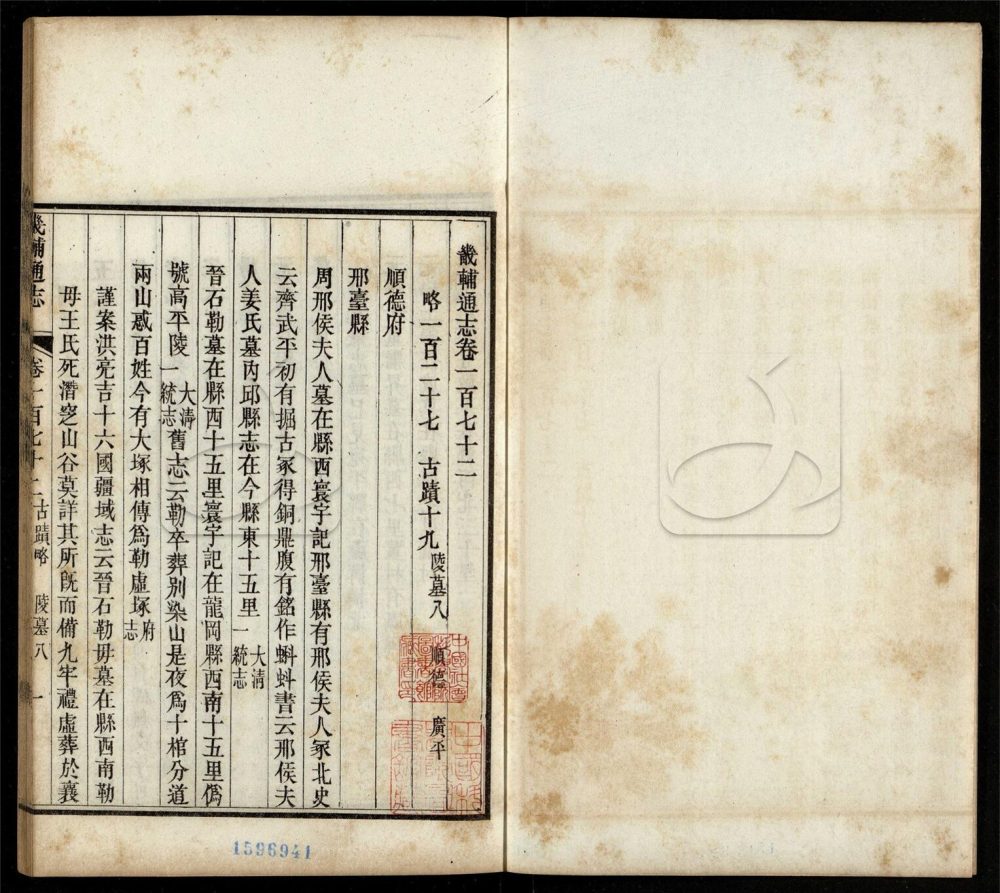 畿輔通志卷一百七十二
略一百二十七　古蹟十九　陵墓八　順德　廣平
順德府
邢臺縣
周邢侯夫人墓在縣西寰宇記邢臺縣有邢侯夫人冢北史
云齊武平初有掘古冢得銅鼎腹有銘作蝌蚪書云邢侯夫
人姜氏墓丙邱縣志在今縣東十五里大清一統志
晉石勒墓在縣西十五里寰宇記在龍岡縣西南十五里僞
號高平陵大淸一統志舊志云勒卒葬別染山是夜爲十棺分道
兩山惑百姓今有大塚相傳爲勒虛塚府志
謹案洪亮吉十六國疆域志云晉石勒毋墓在縣西南勒
毋王氏死潛窆山谷莫詳其所旣而備九牢禮虛葬於襄
畿輔通志　卷一百七十二　古蹟略　陵墓八　一
1596941